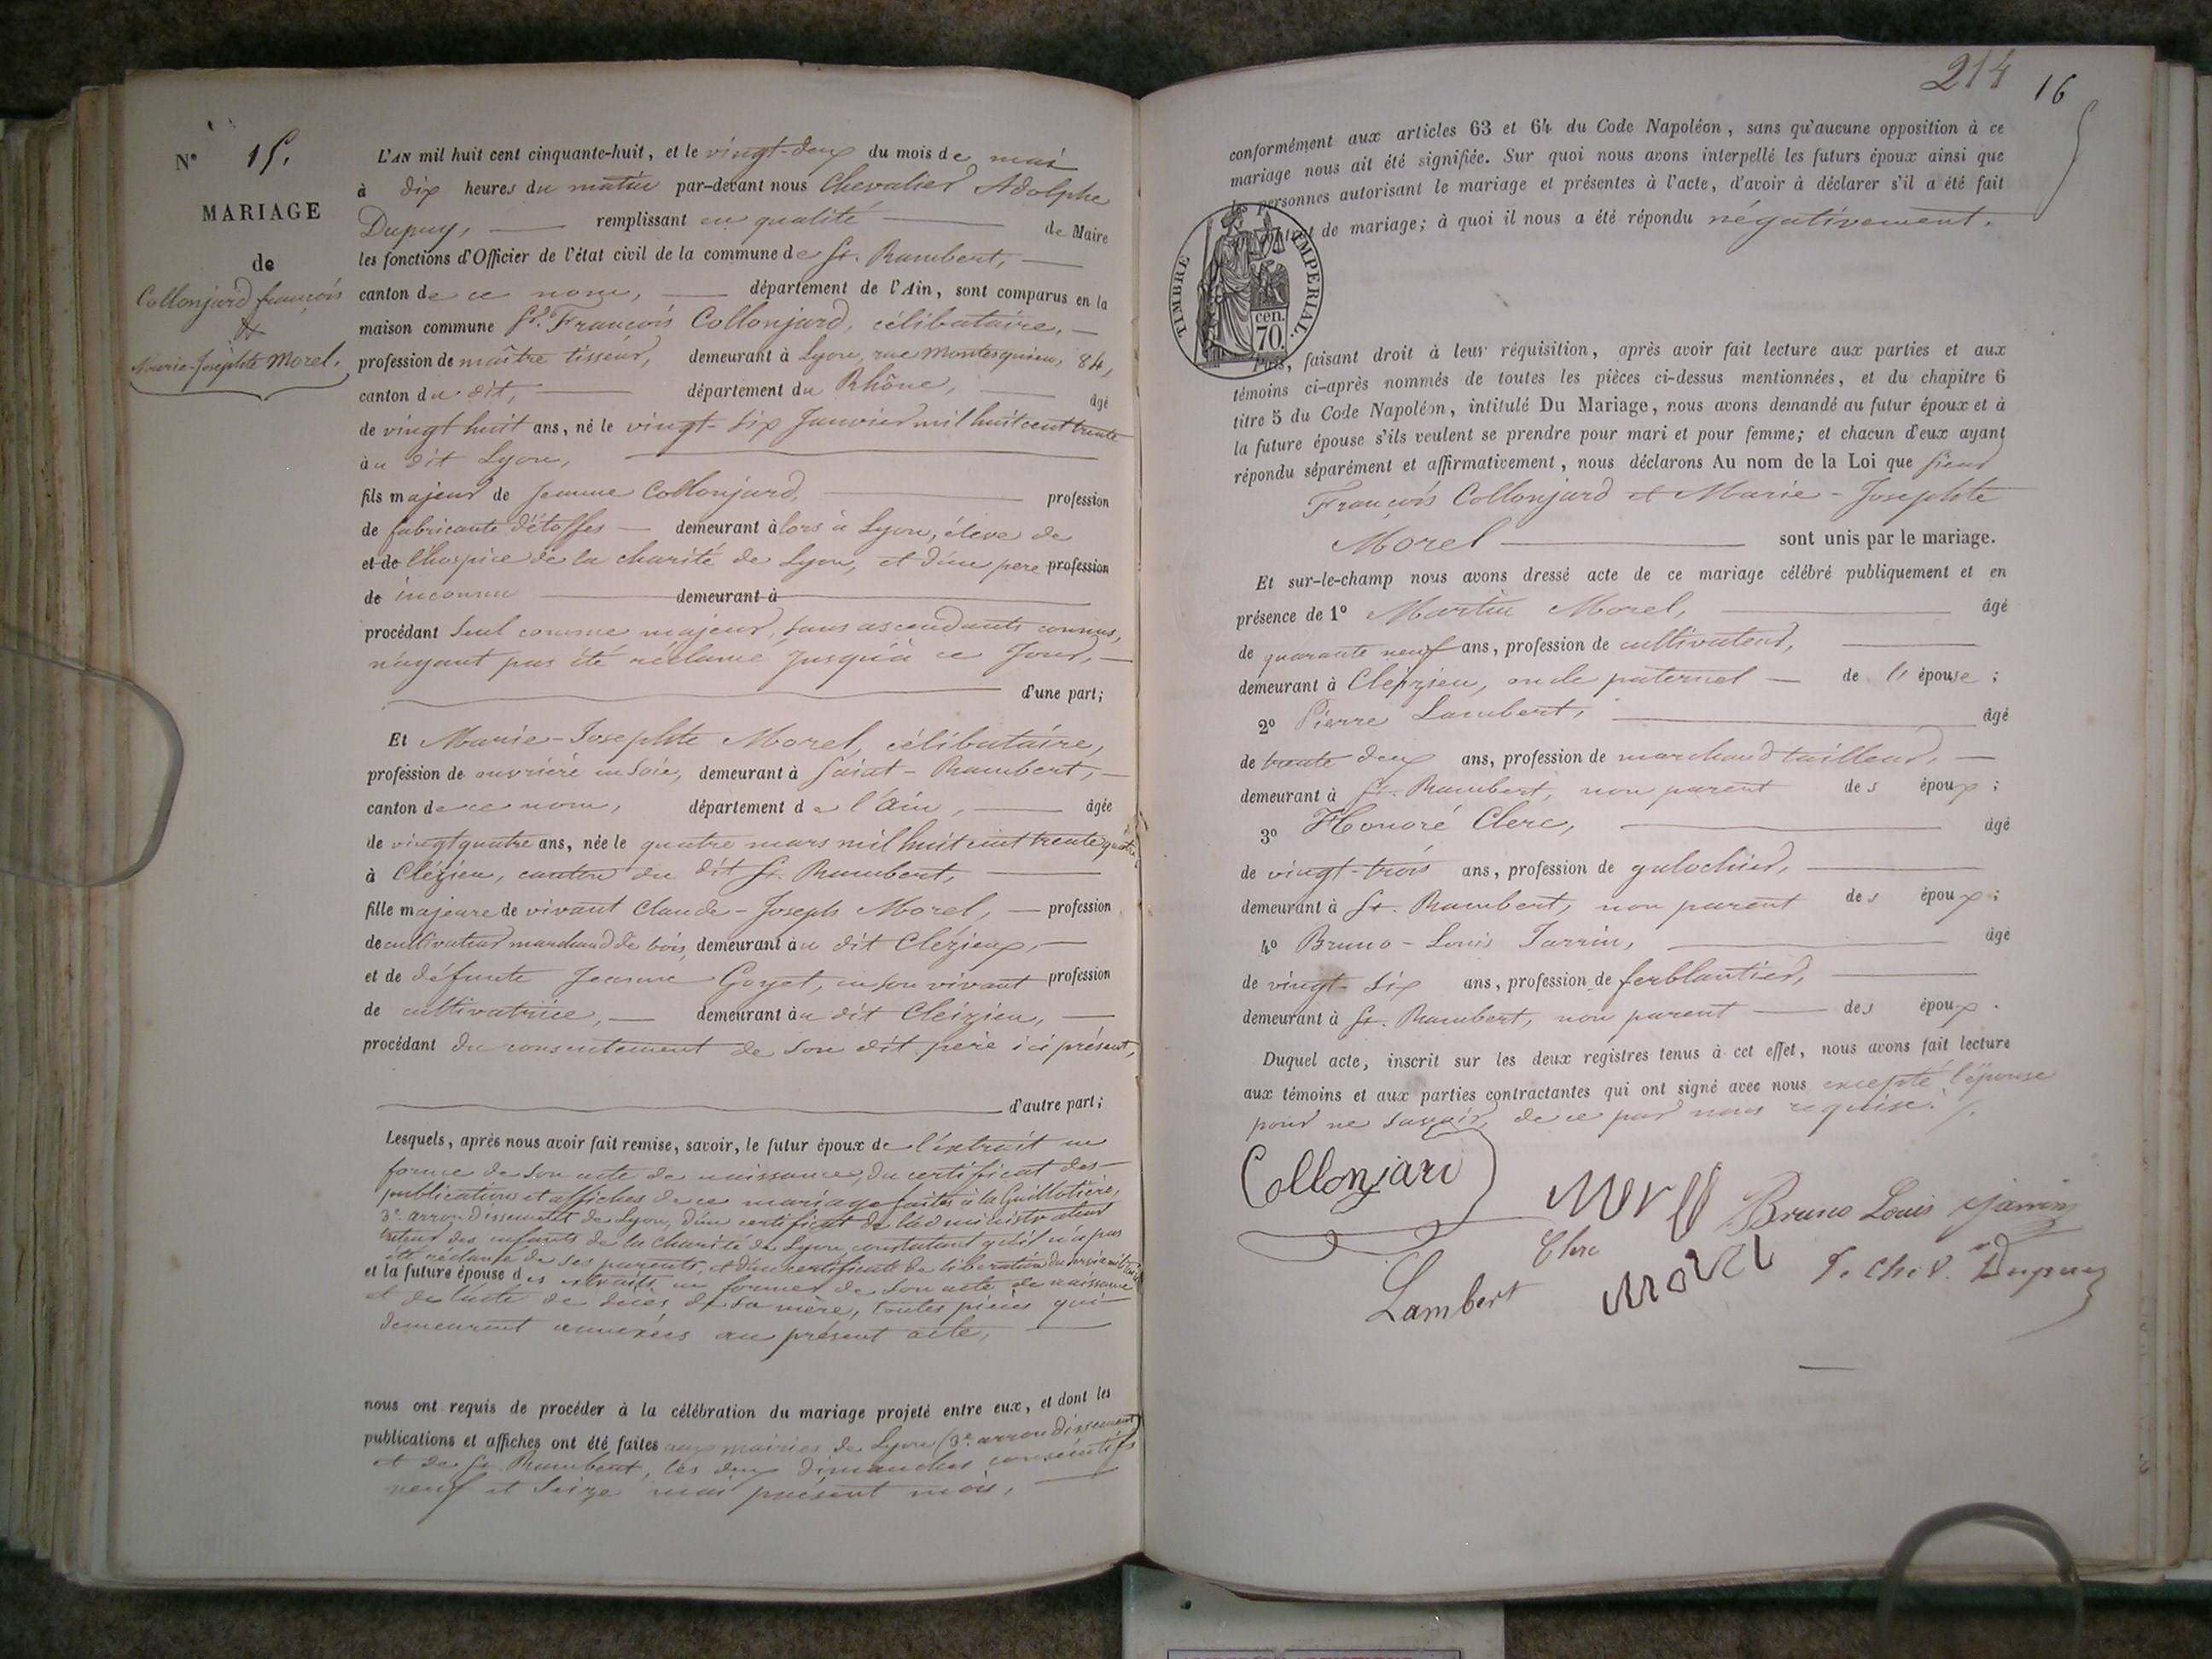 N° 15.
MARIAGE
de
Collonjard françois
&
Marie-Josephte Morel.
L'AN mil huit cent cinquante-huit, et le vingt-deux du mois de mai
à dix heures du matin par-devant nous Chevalier Adolphe
Dupuy, remplissant en qualité de Maire
les fonctions d'Officier de l'état civil de la commune de St. Rambert,
canton de ce nom, département de l'Ain, sont comparus en la
maison commune Sr. François Collonjard, célibataire,
profession de maître tisseur, demeurant à Lyon, rue Montesquieu, 84,
canton du dit, département du Rhône, âgé
de vingt huit ans, né le vingt-six Janvier mil huit cent trente
àu dit Lyon,
fils majeur de Jeanne Collonjard, profession
de fabricante d'étoffes demeurant àlors à Lyon, éleve de
et de l'hospice de la charité de Lyon, et d'un pere profession
de inconnu demeurant à
procédant Seul comme majeur, sans ascendants connus,
n'ayant pas été réclamé jusqu'à ce Jour,
d'une part;
Et Marie-Josephte Morel, célibataire,
profession de ouvrière en Soie, demeurant à Saint-Rambert,
canton de ce nom, département de l'Ain, âgée
de vingt quatre ans, née le quatre mars mil huit cent trente quatre
à Clézieu, canton du dit St. Rambert,
fille majeure de vivant Claude-Joseph Morel, profession
de cultivateur marchand de bois, demeurant àu dit Clézieux,
et de défunte Jeanne Goyet, en son vivant profession
de cultivatrice, demeurant àu dit Cleizieu,
procédant du consentement de son dit père ici présent,
d'autre part;
Lesquels, après nous avoir fait remise, savoir, le futur époux de l'extrait en
forme de son acte de naissance, du certificat des
publications et affiches de ce mariage faites à la Guillotière,
3e. arrondissement de Lyon, d'un certificat de l'administrateur
tuteur des enfants de la charité de Lyon, constatant qu'il n'a pas
été réclamé de ses parents, et d'un certificat de libération du service militaire
et la future épouse des extraits en formes de son acte de naissance
et de l'acte de décès de sa mere, toutes pièces qui
demeurent annexées au présent acte,
nous ont requis de procéder à la célébration du mariage projeté entre eux, et dont les
publications et affiches ont été faites aux mairies de Lyon (3e. arrondissement)
et de St. Rambert, les deux dimanches consécutifs
neuf et seize mai présent mois,
214 16
conformément aux articles 63 et 64 du Code Napoléon, sans qu'aucune opposition à ce
mariage nous ait été signifiée. Sur quoi nous avons interpellé les futurs époux ainsi que
les personnes autorisant le mariage et présentes à l'acte, d'avoir à déclarer s'il a été fait
contrat de mariage; à quoi il nous a été répondu négativement.
TIMBRE IMPERIAL.
cen.
70.
Puis, faisant droit à leur réquisition, après avoir fait lecture aux parties et aux
témoins ci-après nommés de toutes les pièces ci-dessus mentionnées, et du chapitre 6
titre 5 du Code Napoléon, intitulé Du Mariage, nous avons demandé au futur époux et à
la future épouse s'ils veulent se prendre pour mari et pour femme; et chacun d'eux ayant
répondu séparément et affirmativement, nous déclarons Au nom de la Loi que Sieur
François Collonjard et Marie-Josephte
Morel sont unis par le mariage.
Et sur-le-champ nous avons dressé acte de ce mariage célébré publiquement et en
présence de 1° Martin Morel, âgé
de quarante neuf ans, profession de cultivateur,
demeurant à Cleizieu, oncle paternel de l' épouse;
2° Pierre Lambert, âgé
de trente deux ans, profession de marchand tailleur,
demeurant à St. Rambert, non parent des époux;
3° Honoré Clerc, âgé
de vingt-trois ans, profession de galochier,
demeurant à St. Rambert, non parent des époux;
4° Bruno-Louis Jarrin, âgé
de vingt-six ans, profession de ferblantier,
demeurant à St. Rambert, non parent des époux.
Duquel acte, inscrit sur les deux registres tenus à cet effet, nous avons fait lecture
aux témoins et aux parties contractantes qui ont signé avec nous excepté l'épouse
pour ne savoir, de ce par nous requise.
Collonjard Morel Bruno Louis Jarrin
Clerc
Lambert Morel Chev. Dupuy